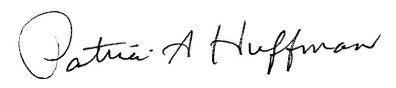 Patricia A Huffman